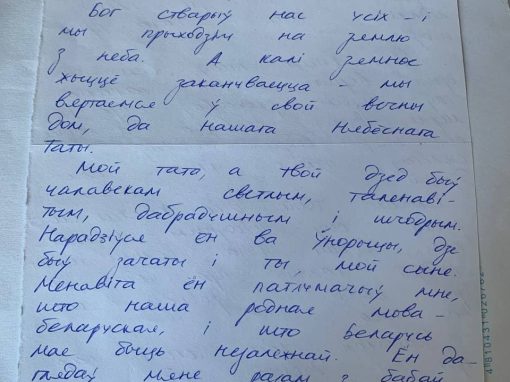 Бог стварыў нас усіх - і
мы прыходзім на землю
з неба. А калі земное
жыццё заканчваецца - мы
вяртаемся ў свой вечны
дом, да нашага Нябёснага
Таты.
Мой тата, а твой дзед быў
чалавекам светлым, таленаві-
тым, дабрадушным і шчодрым.
Нарадзіўся ён ва Ўкорыцы, дзе
быў зачаты і ты, мой сыне.
Менавіта ён патлумачыў мне,
што наша родная мова -
беларуская, і што Беларусь
мае быць незалежнай. Ён да-
глядаў мяне разам з бабай